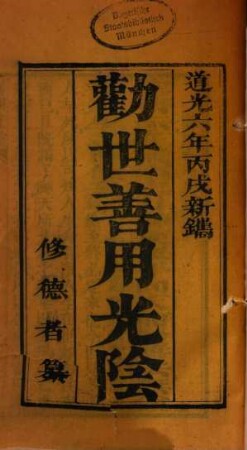 Bayerische
Staatsbibliothek
München
道光六年丙戌新鐫
勸世善用光陰
修德者纂